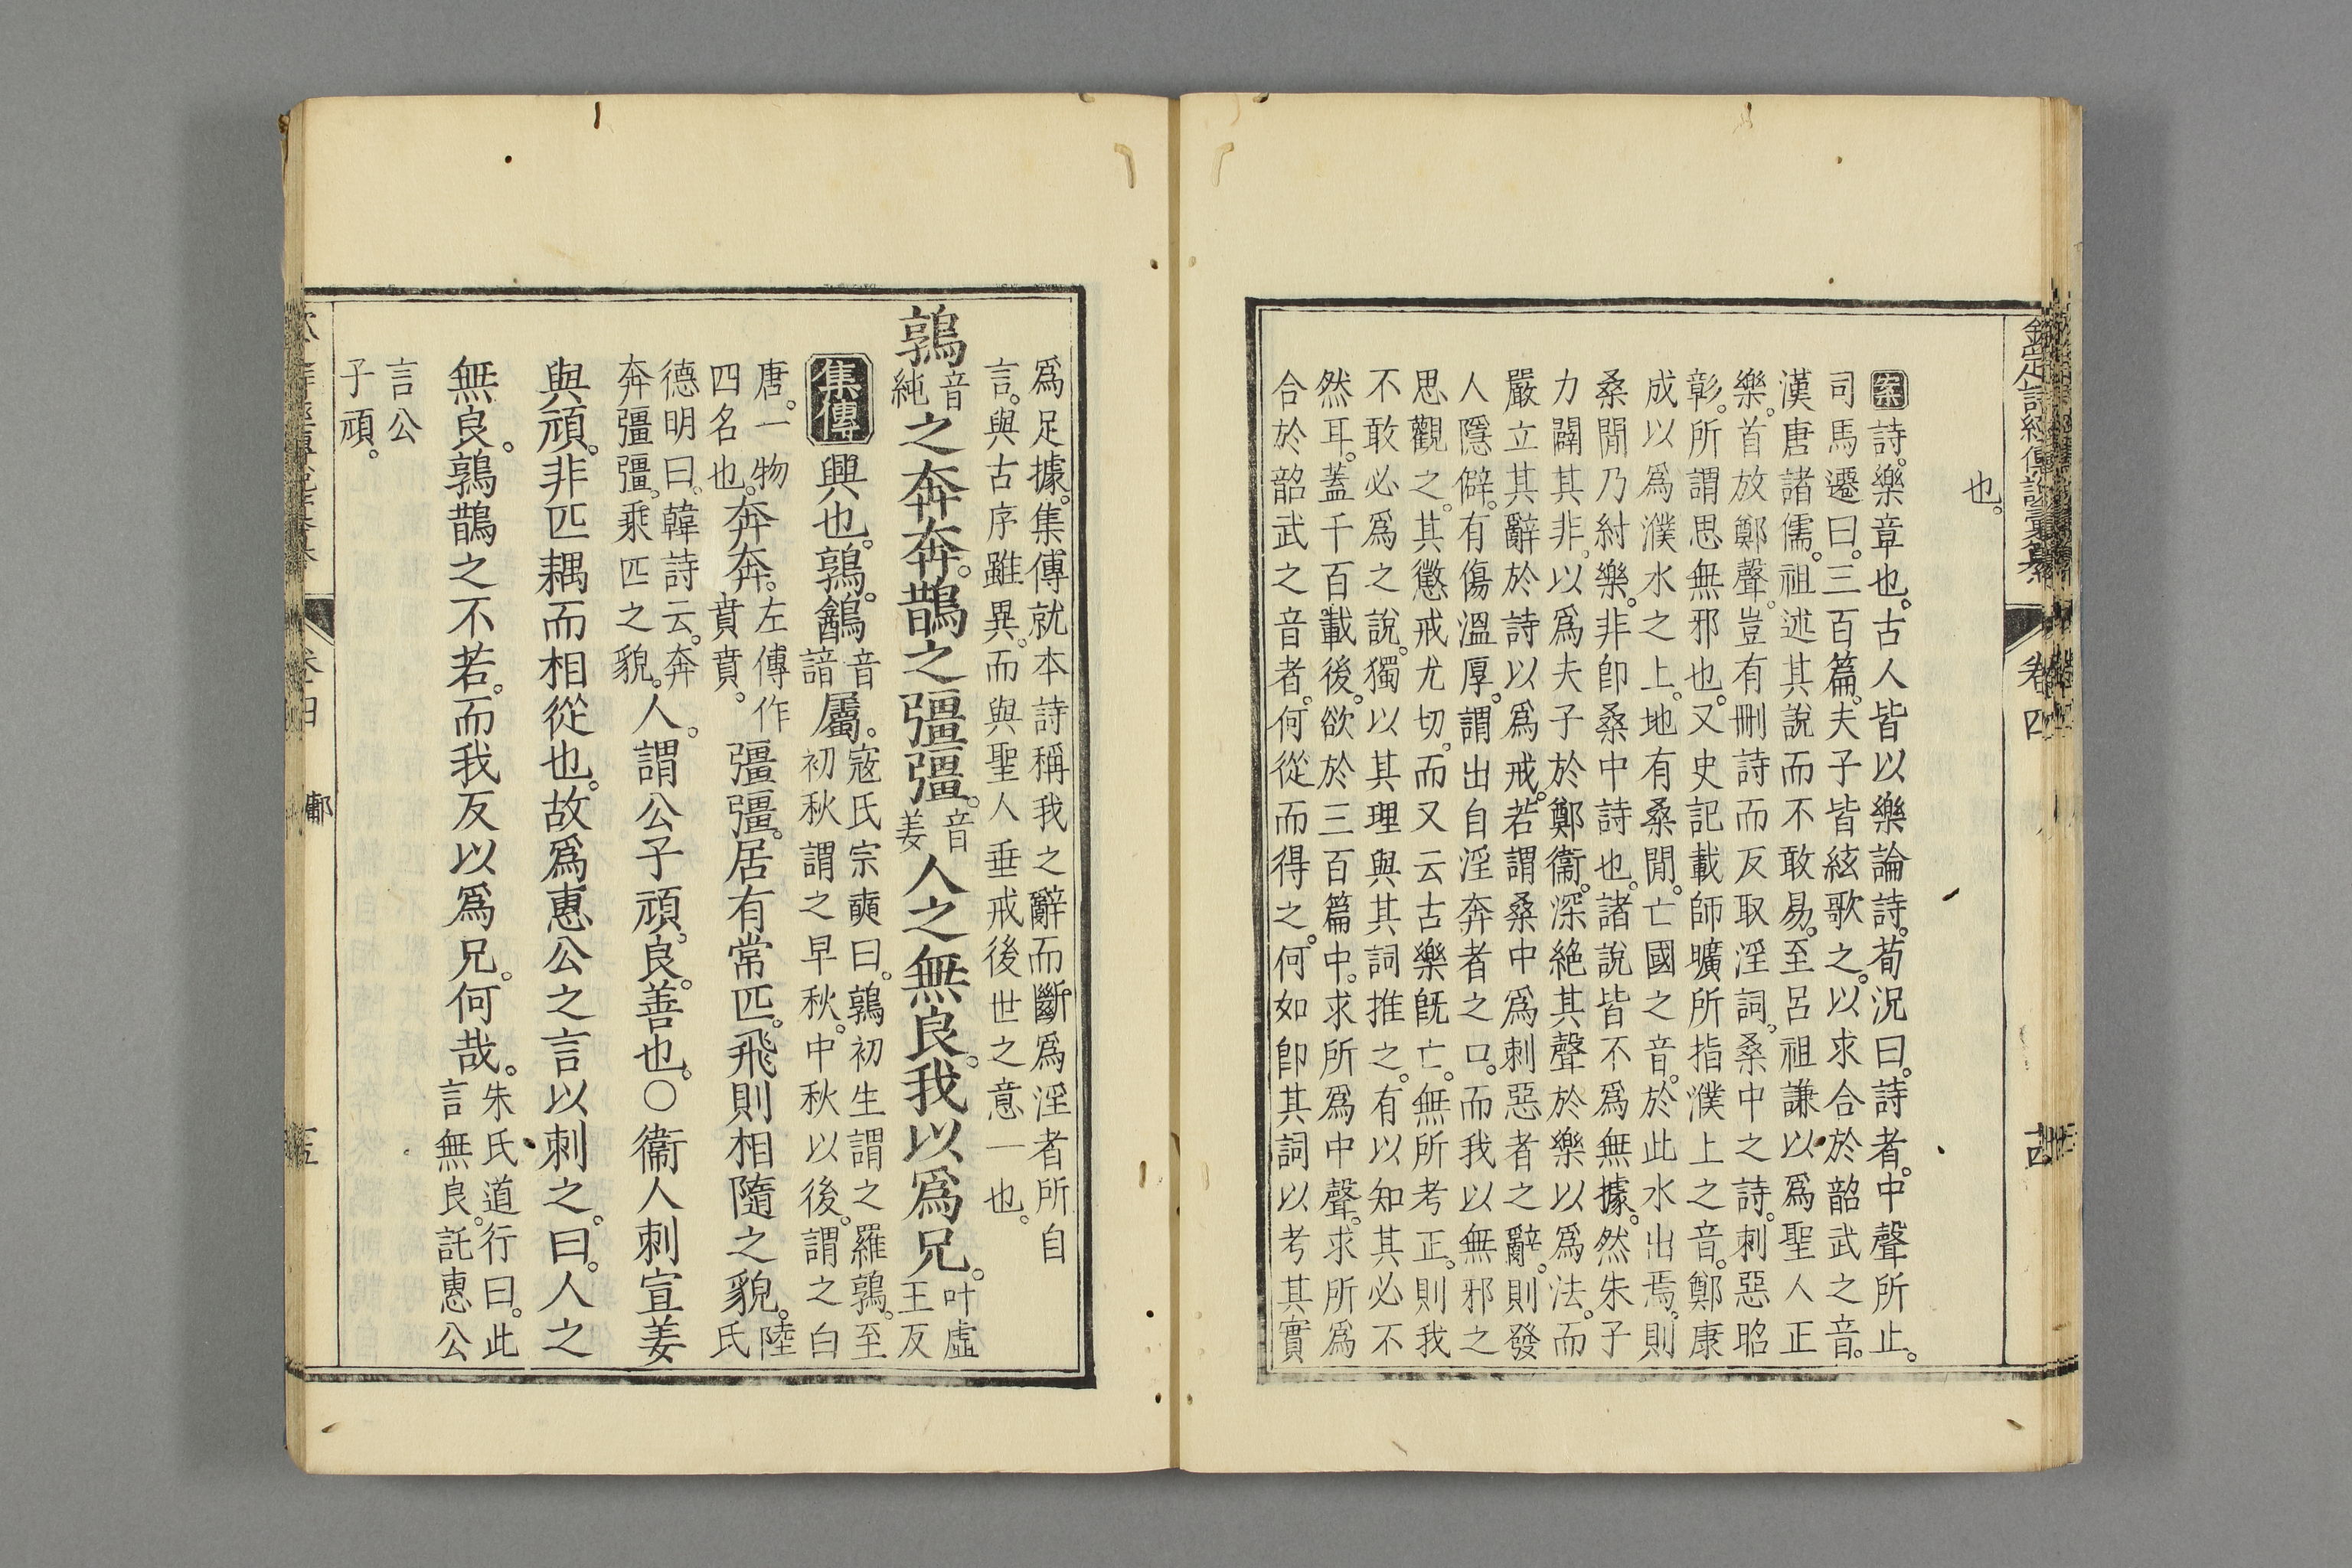 欽定詩經傳說彙纂
卷四
也。
案詩。樂章也。古人皆以樂論詩。荀況曰。詩者。中聲所止。
司馬遷曰。三百篇。夫子皆絃歌之。以求合於韶武之音。
漢唐諸儒。祖述其說而不敢易。至呂祖謙以爲聖人正
樂。首放鄭聲。豈有刪詩而反取淫詞。桑中之詩。刺惡昭
彰。所謂思無邪也。又史記載師曠所指濮上之音。鄭康
成以爲濮水之上。地有桑閒。亡國之音。於此水出焉。則
桑閒乃紂樂。非卽桑中詩也。諸說皆不爲無據。然朱子
力闢其非。以爲夫子於鄭衞。深絕其聲於樂以爲法。而
嚴立其辭於詩以爲戒。若謂桑中爲刺惡者之辭。則發
人隱僻。有傷溫厚。謂出自淫奔者之口。而我以無邪之
思觀之。其懲戒尤切。而又云古樂旣亡。無所考正。則我
不敢必爲之說。獨以其理與其詞推之。有以知其必不
然耳。蓋千百載後。欲於三百篇中。求所爲中聲。求所爲
合於韶武之音者。何從而得之。何如卽其詞以考其實
爲足據。集傳就本詩稱我之辭而斷爲淫者所自
言。與古序雖異。而與聖人垂戒後世之意一也。
鶉音純之奔奔。鵲之彊彊。音姜人之無良。我以爲兄。叶虛王反
集傳興也。鶉。鵪音諳屬。寇氏宗奭曰。鶉初生謂之羅鶉。至初秋謂之早秋。中秋以後。謂之白
唐。一物四名也。奔奔。左傳作賁賁。彊彊。居有常匹。飛則相隨之貌。陸氏
德明曰。韓詩云。奔奔彊彊。乘匹之貌。人。謂公子頑。良。善也。○衞人刺宣姜
與頑。非匹耦而相從也。故爲惠公之言以刺之。曰。人之
無良。鶉鵲之不若。而我反以爲兄。何哉。朱氏道行曰。此言無良。託惠公
言公子頑。
卷四
鄘